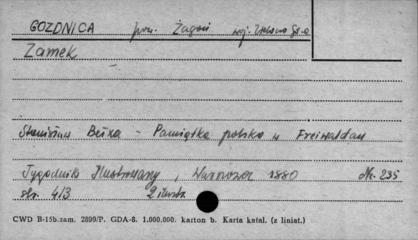 GOZDNICA pow. Żagań woj. Zielona Góra
Zamek
Stanisław Bełza - Pamiątka polska w Freiwaldau
Tygodnik Illustrowany, Warszawa 1880 Nr. 235
str. 413 2 ilustr.
CWD B-15b.zam. 2899/P. GDA-8. 1.000.000. karton b. Karta katal. (z liniat.)